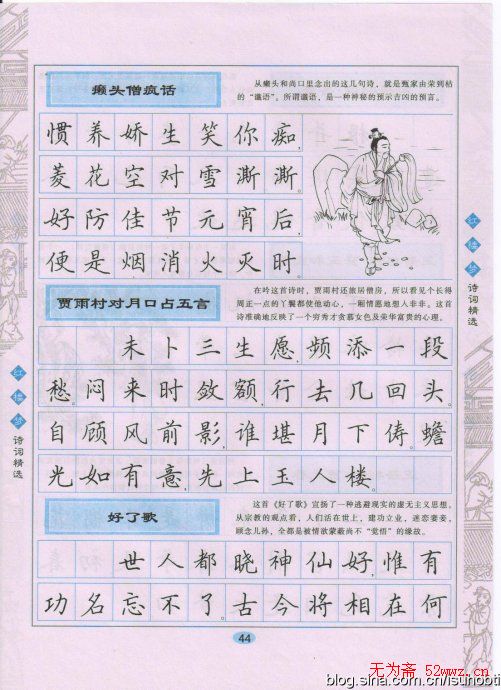 癞头僧疯话
从癞头和尚口里念出的这几句诗，就是甄家由荣到枯
的“谶语”。所谓谶语，是一种神秘的预示吉凶的预言。
惯养娇生笑你痴，
菱花空对雪澌澌。
好防佳节元宵后，
便是烟消火灭时
贾雨村对月口占五言
在吟这首诗时，贾雨村还旅居僧房，所以看见个长得
周正一点的丫鬟都使他动心，一厢情愿地想入非非。这首
诗准确地反映了一个穷秀才贪慕女色及荣华富贵的心理。
未卜三生愿，频添一段
愁。闷来时敛额，行去几回头。
自顾风前影，谁堪月下俦。蟾
光如有意，先上玉人楼。
好了歌
这首《好了歌》宣扬了一种逃避现实的虚无主义思想。
从宗教的观点看，人们活在世上，建功立业，迷恋妻妾，
顾念儿孙，全都是被情欲蒙蔽尚不“觉悟”的缘故。
世人都晓神仙好，惟有
功名忘不了古今将相在何
44
红楼梦
诗词精选
红楼梦
诗词精选
无为斋 52wwz.cn
blog.sina.com.cn/lsunobti